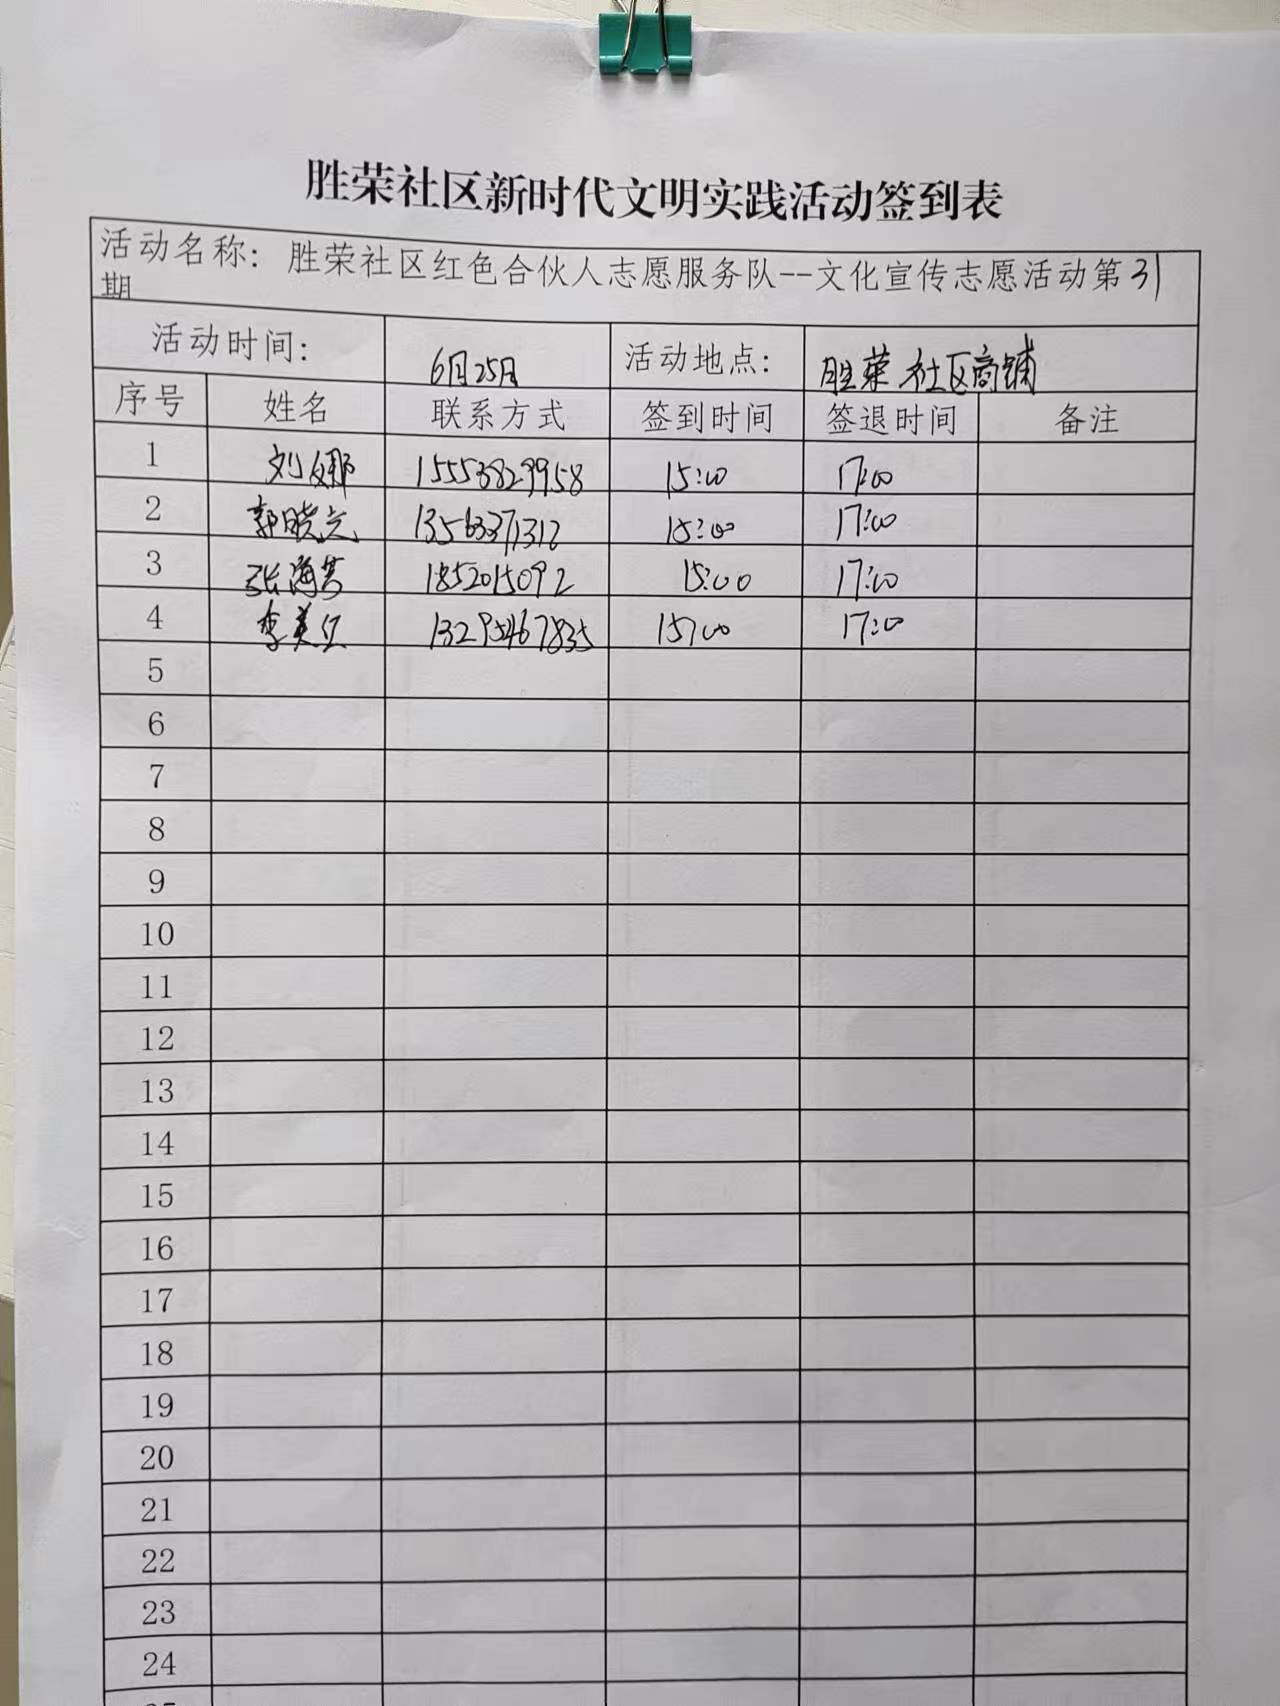 胜荣社区新时代文明实践活动签到表
活动名称：胜荣社区红色合伙人志愿服务队--文化宣传志愿活动第31
期
活动时间： 6月25日 活动地点： 胜荣社区商铺
序号 姓名 联系方式 签到时间 签退时间 备注
1 刘娜 15553829958 15:00 17:00
2 郭晓 13563371312 15:00 17:00
3 张海 1852015092 15:00 17:00
4 李美 13295467835 15:00 17:00
5
6
7
8
9
10
11
12
13
14
15
16
17
18
19
20
21
22
23
24